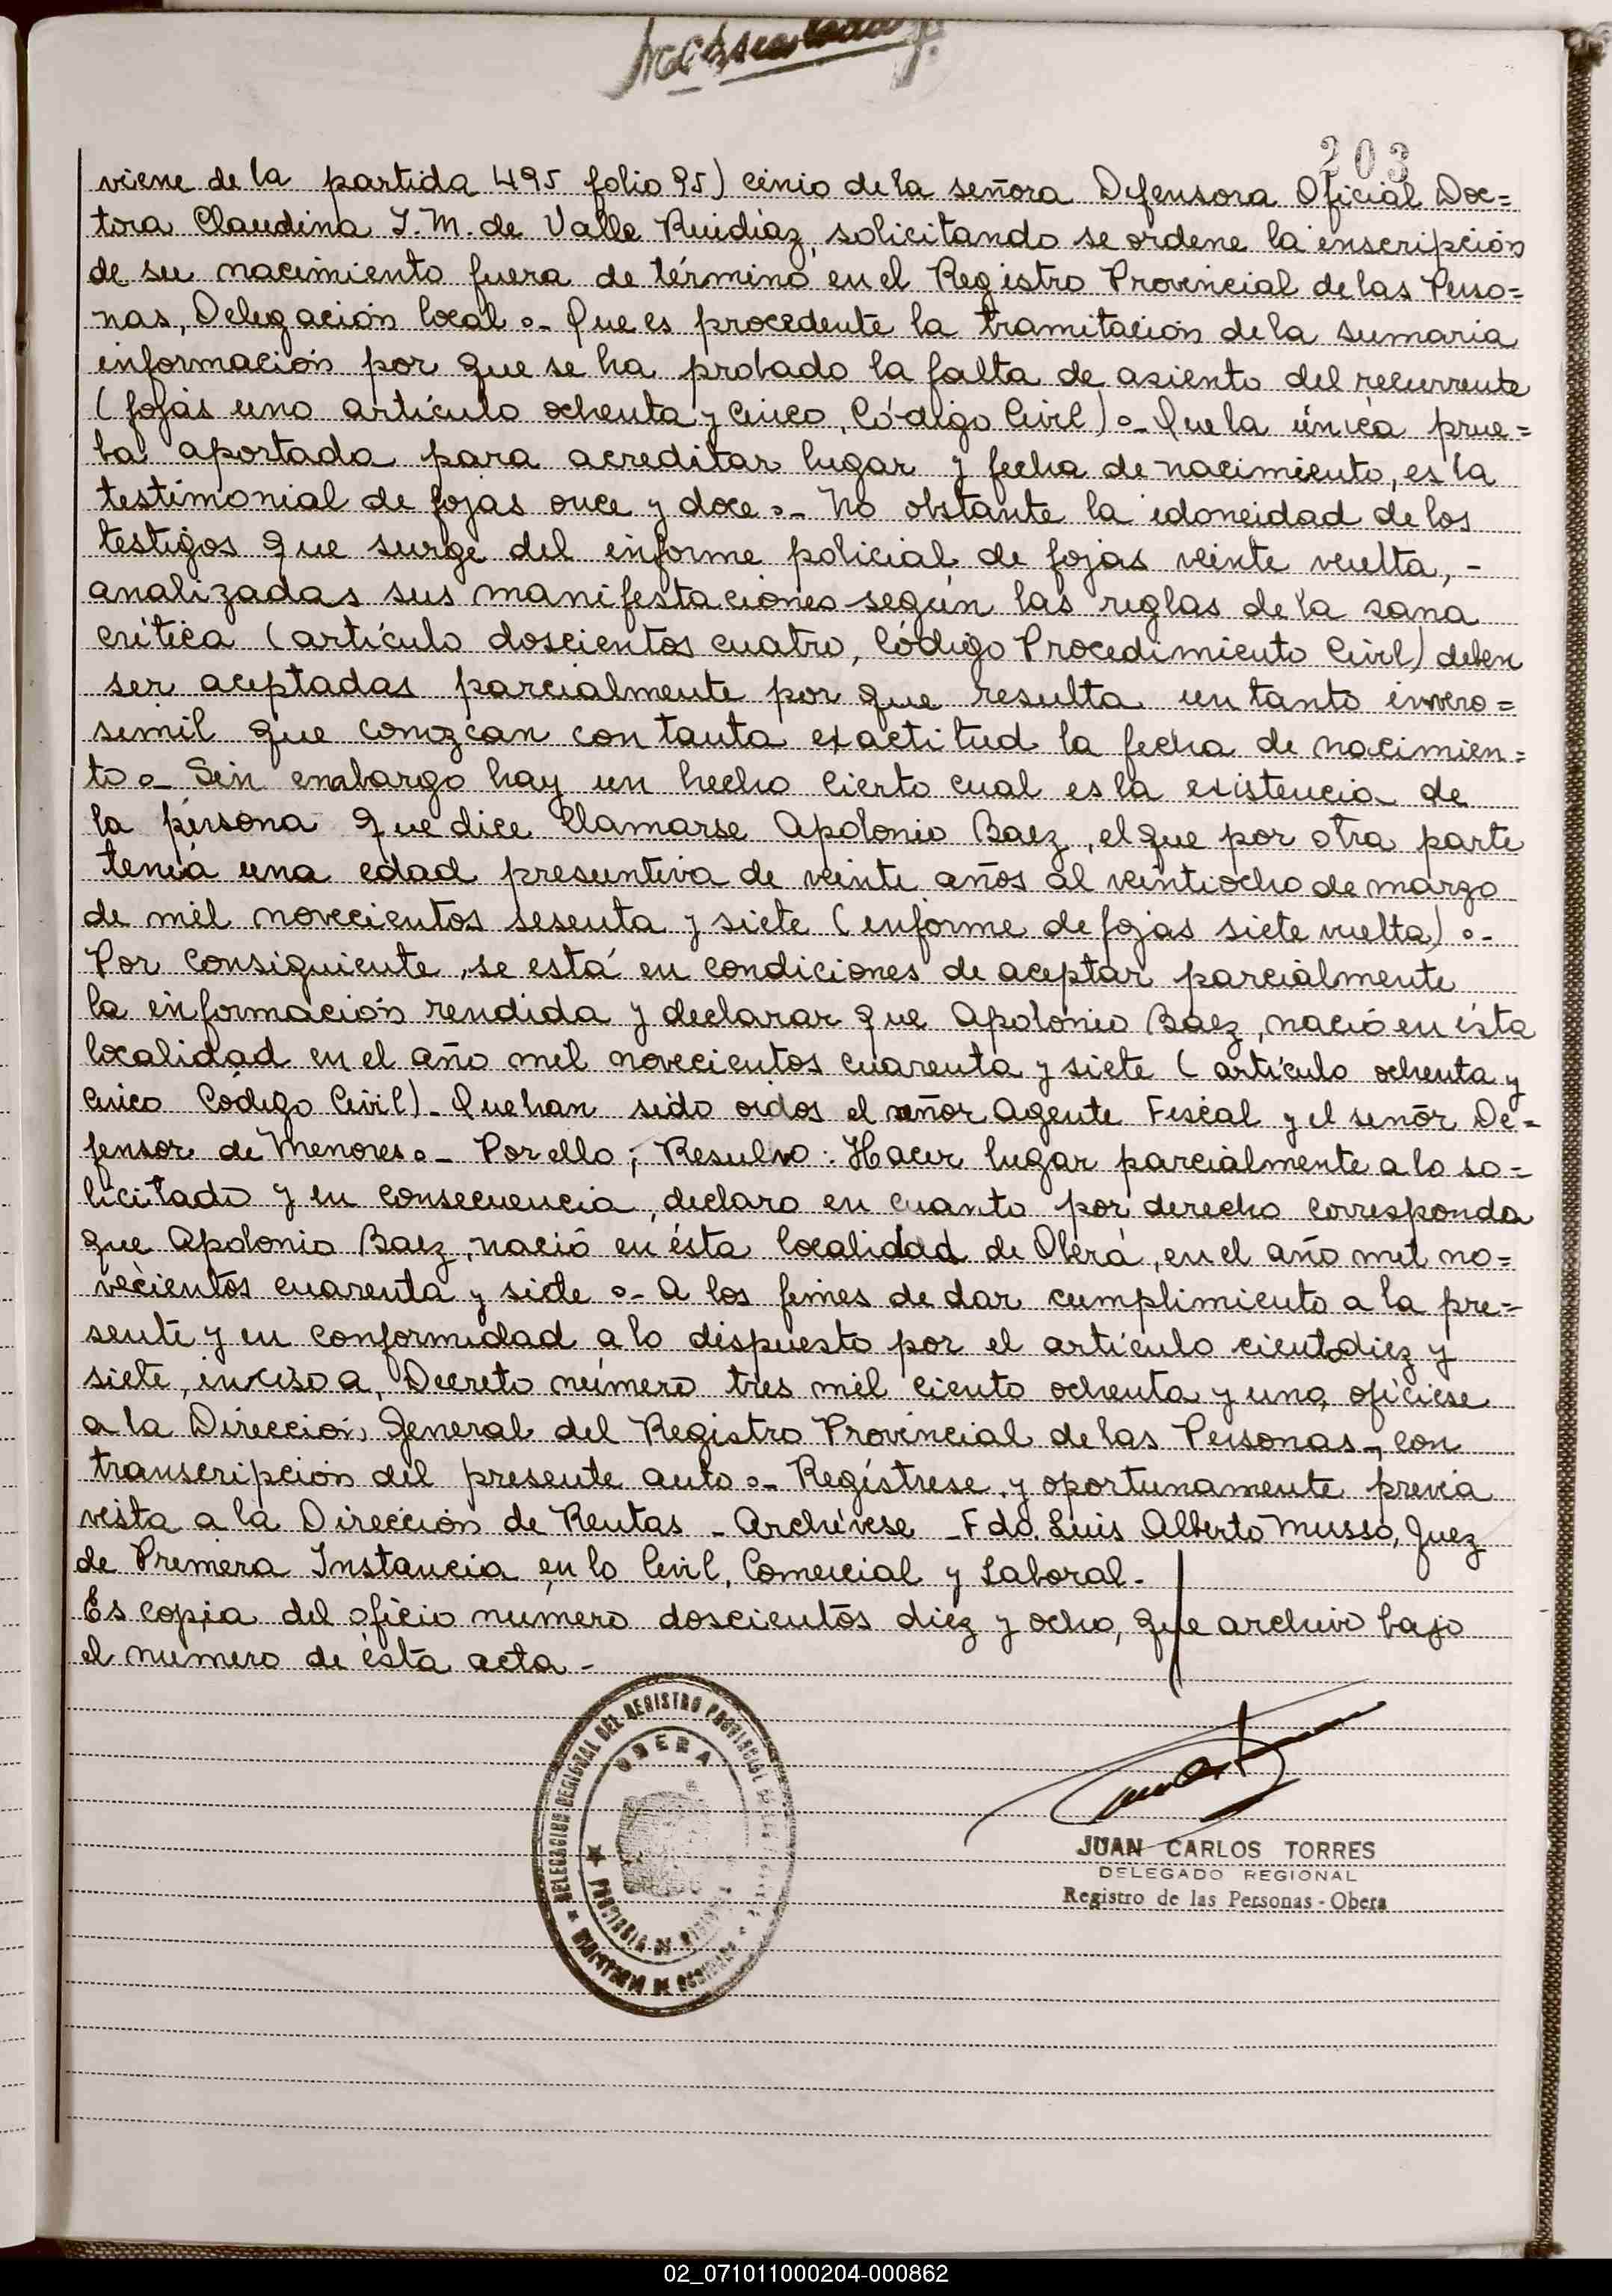 203
viene de la partida 495 folio 95) cinio de la señora Defensora Oficial Doc=
tora Claudina I. M. de Valle Ruidiaz, solicitando se ordene la inscripción
de su nacimiento fuera de término en el Registro Provincial de las Perso=
nas, Delegación local.- Que es procedente la tramitación de la sumaria
información por que se ha probado la falta de asiento del recurrente
(fojas uno artículo ochenta y cinco, Código Civil).- Que la única prue=
ba aportada para acreditar lugar y fecha de nacimiento, es la
testimonial de fojas once y doce.- No obstante la idoneidad de los
testigos que surge del informe policial de fojas veinte vuelta, -
analizadas sus manifestaciones según las reglas de la sana
crítica (artículo doscientos cuatro, Código Procedimiento Civil) deben
ser aceptadas parcialmente por que resulta un tanto invero=
semil que conozcan con tanta exactitud la fecha de nacimien=
to.- Sin embargo hay un hecho cierto cual es la existencia de
la persona que dice llamarse Apolonio Baez, el que por otra parte
tenía una edad presuntiva de veinte años al veintiocho de marzo
de mil novecientos sesenta y siete (informe de fojas siete vuelta).-
Por consiguiente, se está en condiciones de aceptar parcialmente
la información rendida y declarar que Apolonio Baez, nació en ésta
localidad en el año mil novecientos cuarenta y siete (artículo ochenta y
cinco Código Civil)- Que han sido oidos el señor Agente Fiscal y el señor De=
fensor de Menores.- Por ello; Resuelvo: Hacer lugar parcialmente a lo so=
licitado y en consecuencia, declaro en cuanto por derecho corresponda
que Apolonio Baez, nació en ésta localidad de Oberá, en el año mil no=
vecientos cuarenta y siete.- A los fines de dar cumplimiento a la pre=
sente y en conformidad a lo dispuesto por el artículo ciento diez y
siete, inciso a, Decreto número tres mil ciento ochenta y uno, ofíciese
a la Dirección General del Registro Provincial de las Personas, con
transcripción del presente auto.- Regístrese y oportunamente previa
vista a la Dirección de Rentas - Archívese - Fdo. Luis Alberto Musso, Juez
de Primera Instancia en lo Civil, Comercial y Laboral.-
Es copia del oficio numero doscientos diez y ocho, que archivo bajo
el numero de ésta acta -
DELEGACION REGIONAL DEL REGISTRO PROVINCIAL DE LAS
OBERA
PROVINCIA DE
JUAN CARLOS TORRES
DELEGADO REGIONAL
Registro de las Personas - Obera
02_071011000204-000862